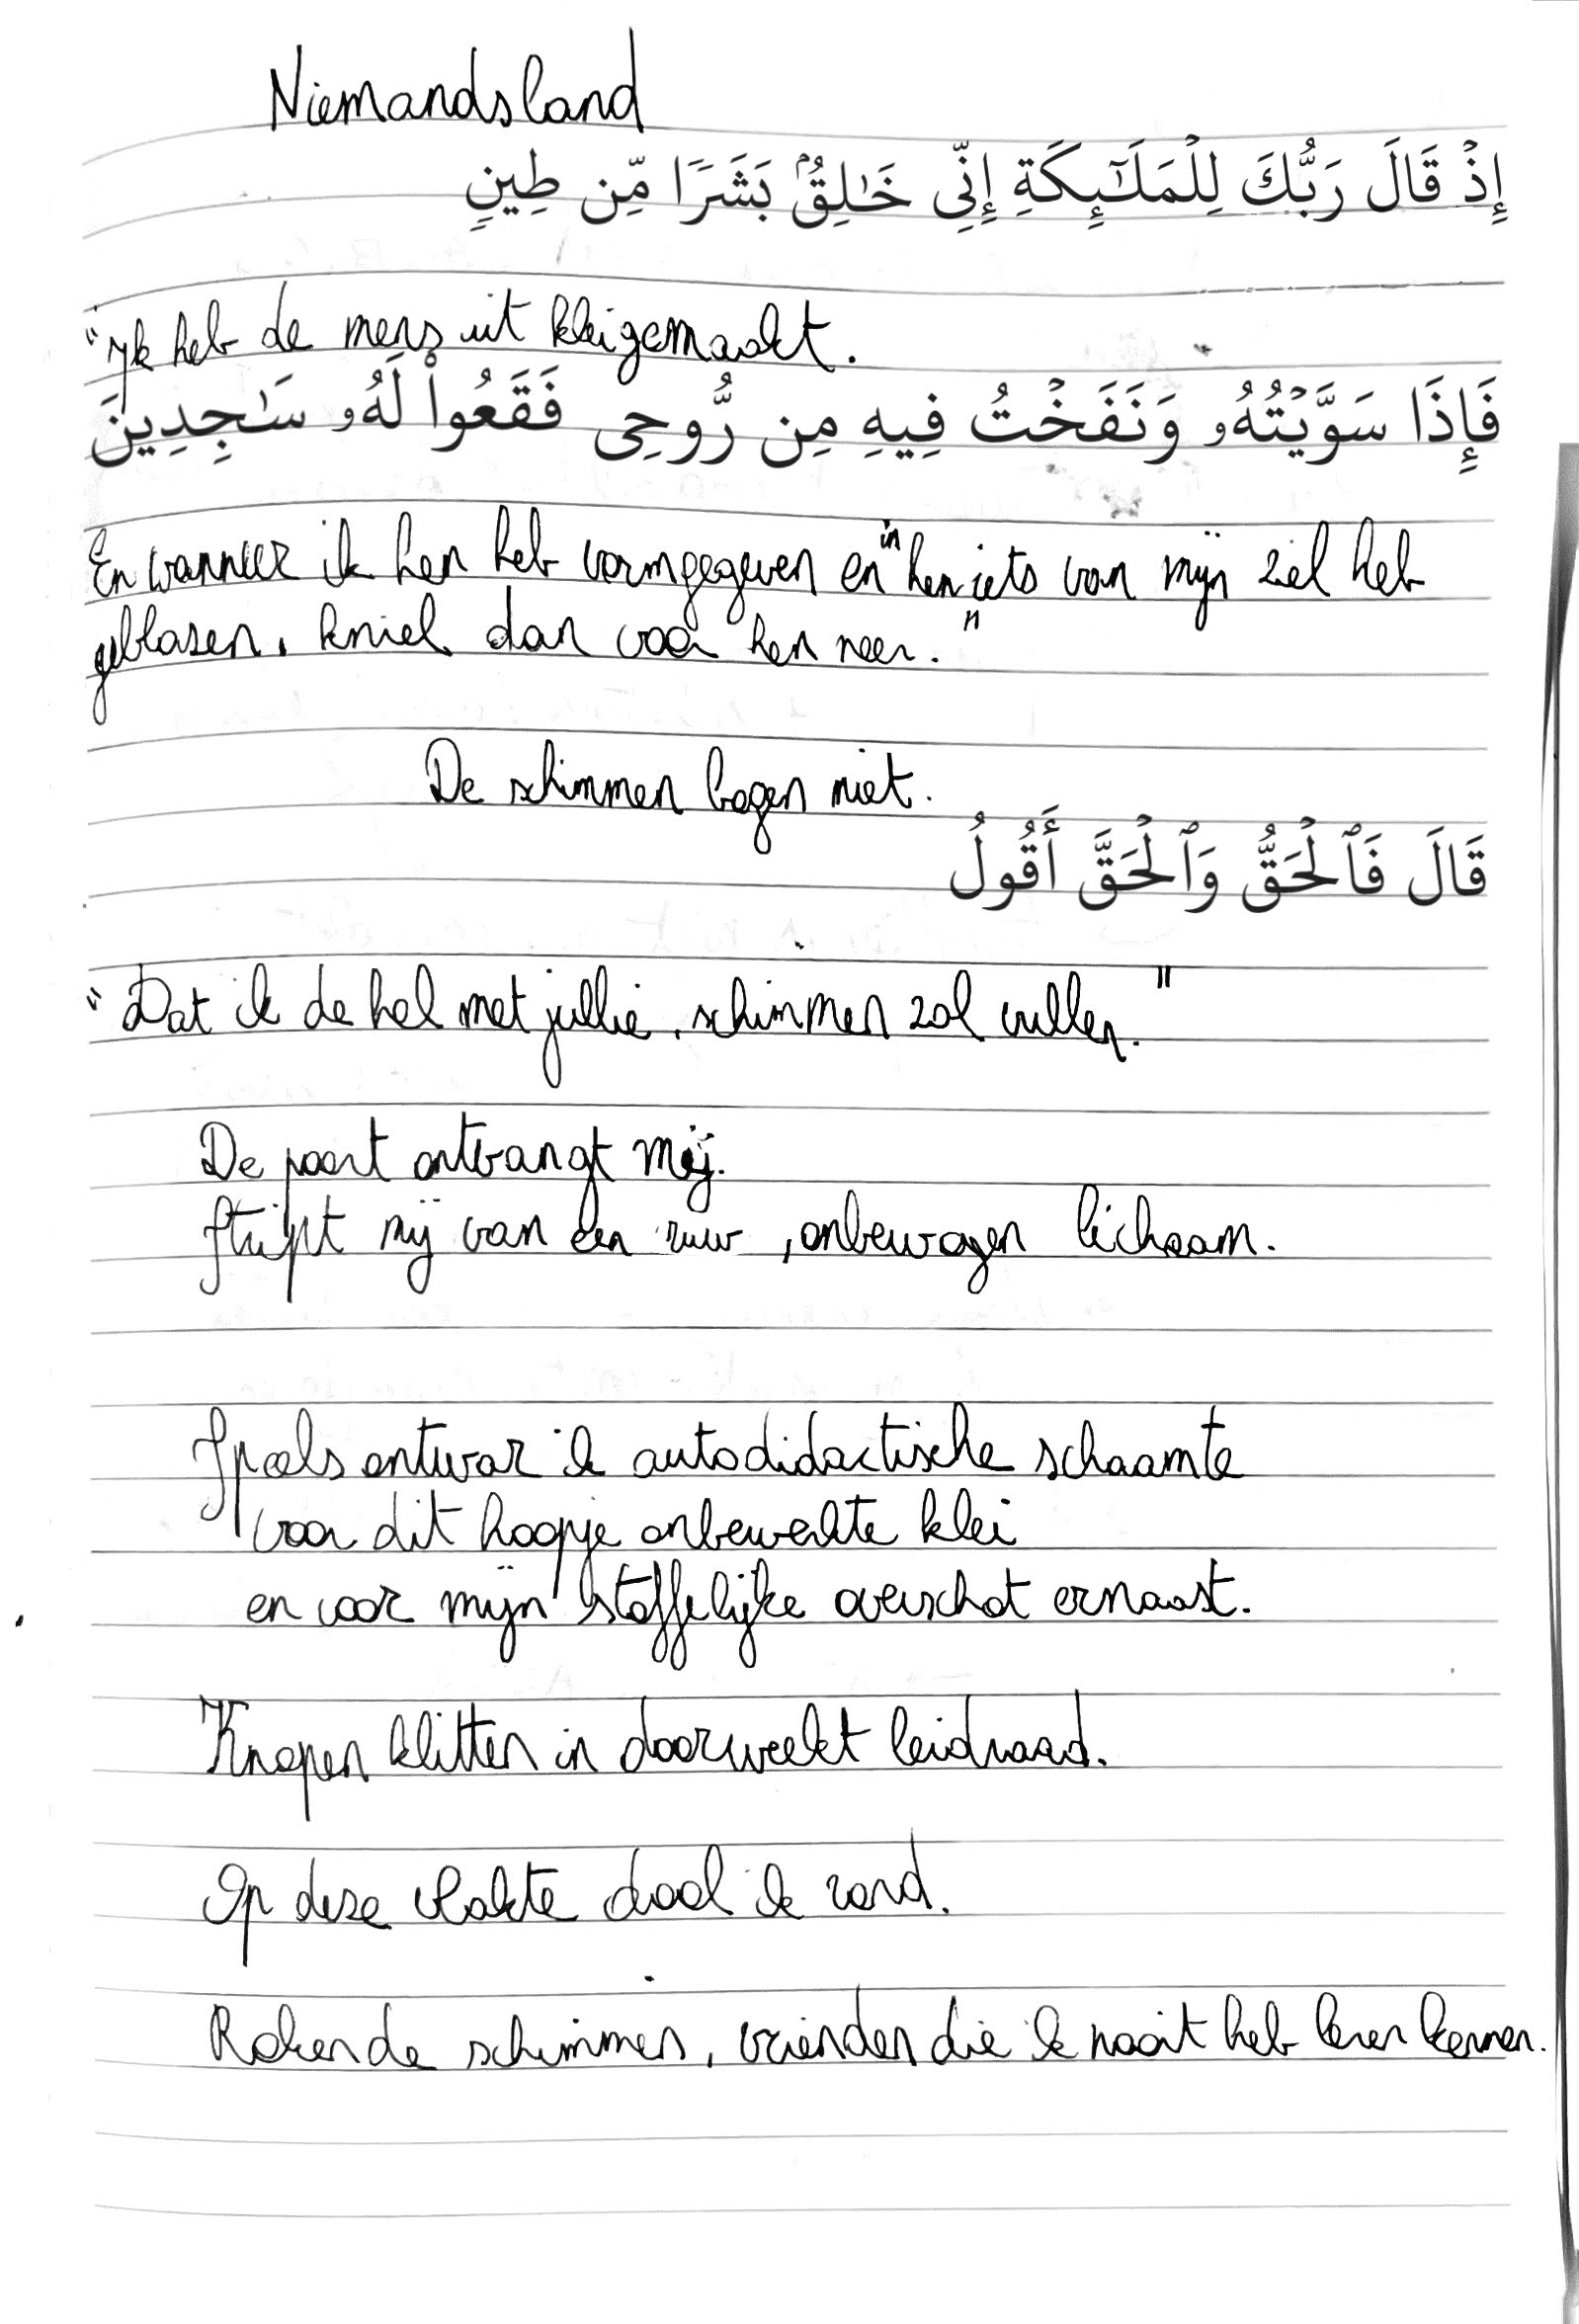 Niemandsland
إِذْ قَالَ رَبُّكَ لِلْمَلَٰٓئِكَةِ إِنِّى خَٰلِقٌۢ بَشَرًا مِّن طِينٍ
"Ik heb de mens uit klei gemaakt.
فَإِذَا سَوَّيْتُهُۥ وَنَفَخْتُ فِيهِ مِن رُّوحِى فَقَعُوا۟ لَهُۥ سَٰجِدِينَ
En wanneer ik hen heb vormgegeven en in hen iets van mijn ziel heb
geblazen, kniel dan voor hen neer."
De schimmen bogen niet.
قَالَ فَٱلْحَقُّ وَٱلْحَقَّ أَقُولُ
"Dat ik de hel met jullie, schimmen zal vullen."
De poort ontvangt mij.
stript mij van een ruw, onbewogen lichaam.
Speels ontwar ik autodidactische schaamte
voor dit hoopje onbewerkte klei
en voor mijn stoffelijke overschot ernaast.
Knopen klitten in doorweekt leidraad.
Op deze vlakte dool ik rond.
Rokende schimmen, vrienden die ik nooit heb leren kennen.